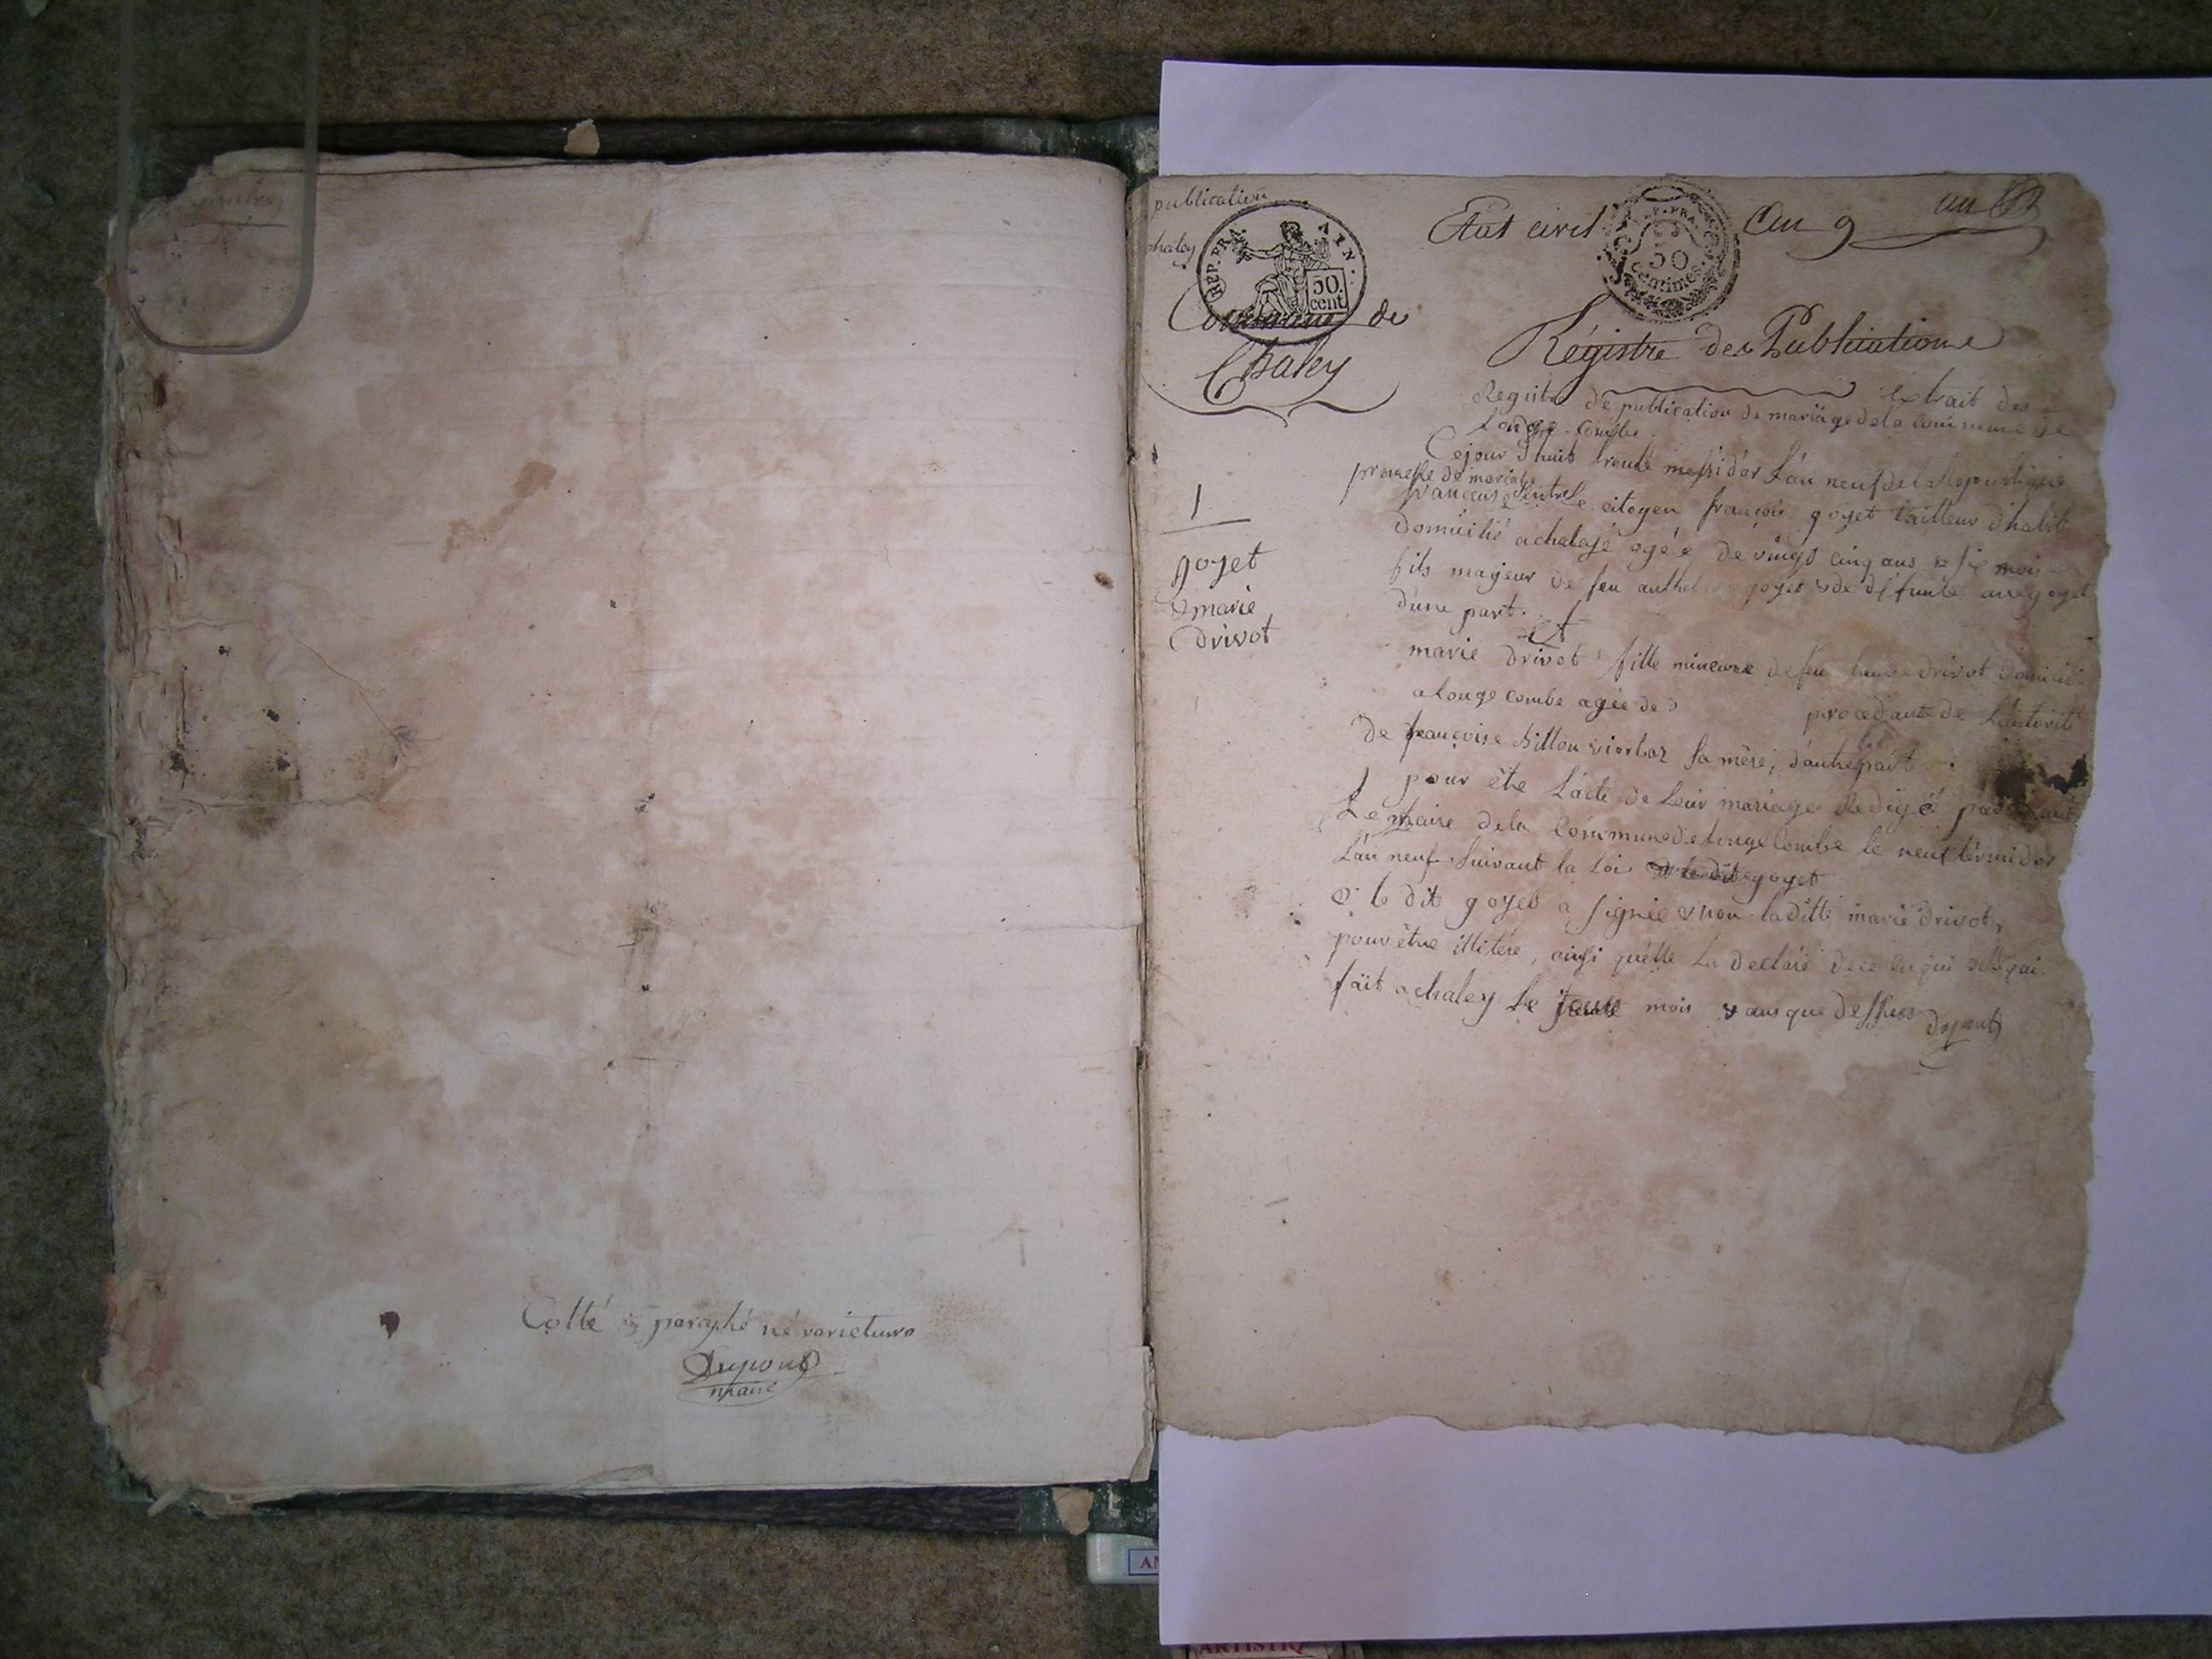 Cotté & paraphé né varietur
Dupont
maire
publication
chaley
REP. FRA. AIN.
50.
cent
Etat civil
50
centimes.
An 9
un
Commune de
Chaley
Régistre des Publications
Extrait des
Registre de publication de mariage de la commune de
Longe Combe
Cejourd'huit trente messidor L'an neuf de la Republique
promesse de mariage
francaise entre Le citoyen françois goyet tailleur d'habit
domicilié a chaley agée de vingt cinq ans & si mois
fils majeur de feu anthel goyet & de defunte goyet
d'une part.
Et
marie drivot fille mineure de feu drivot domicilié
a longe combe agée de procedante de L'autorité
De françoise billon sa mère, d'autre part
pour être L'acte de Leur mariage Redigé par devant
Le maire de la Commune de Longe Combe le neuf térmidor
L'an neuf suivant la Loi goyet
& le dit goyet a signé & non la ditte marie drivot,
pour être illitére, ainsi qu'elle La declaré de ce enqui
fait a chaley Le mois & ans que dessus dupont
1
goyet
& marie
drivot
ARTISTIQ